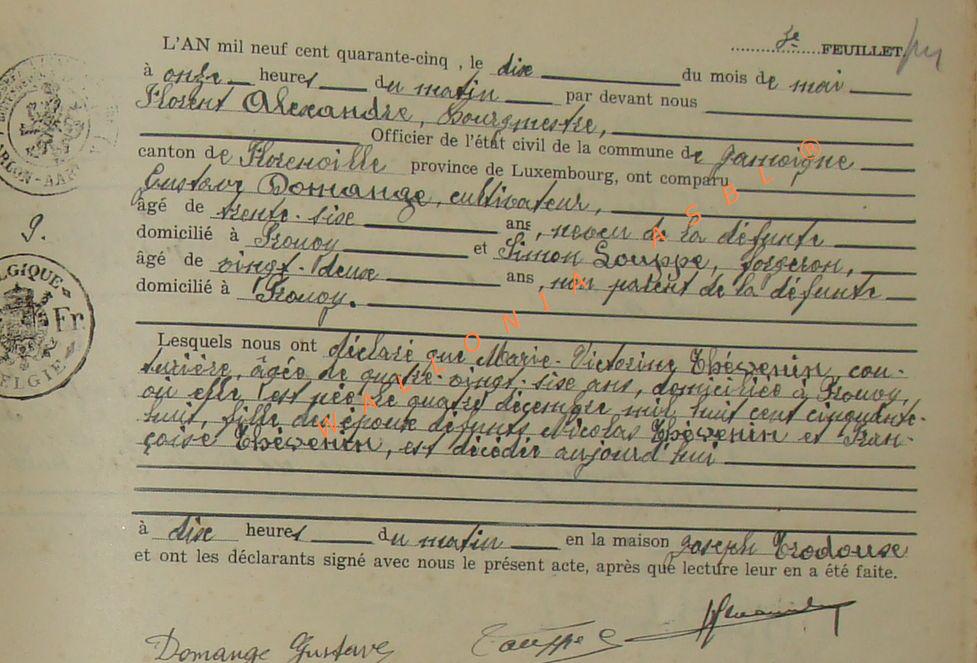 3e FEUILLET.
L'AN mil neuf cent quarante-cinq, le dix du mois de mai
à onze heures du matin par devant nous
Florent Alexandre, Bourgmestre,
Officier de l'état civil de la commune de Jamoigne
canton de Florenville province de Luxembourg, ont comparu
Gustave Domange, cultivateur,
âgé de trente-six ans, neveu de la défunte
domicilié à Prouvy et Simon Louppe, forgeron,
âgé de vingt-deux ans, non parent de la défunte
domicilié à Prouvy.
9.
BELGIQUE
Fr.
BELGIE
Lesquels nous ont déclaré que Marie-Victorine Thévenin, cou-
turière, âgée de quatre-vingt-six ans, domiciliée à Prouvy,
où elle est née le quatre décembre mil huit cent cinquante-
huit, fille des époux défunts Nicolas Thévenin et Fran-
çoise Thévenin, est décédée aujourd'hui
à dix heures du matin en la maison Joseph Trodoux
et ont les déclarants signé avec nous le présent acte, après que lecture leur en a été faite.
Domange Gustave Louppe S
WALLONIA ASBL ®